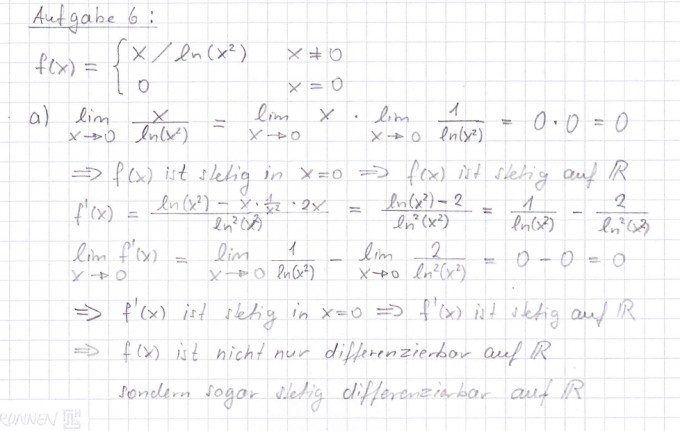 Aufgabe 6:
f(x) = { x / ln(x²)   x ≠ 0
0   x = 0
a) lim x→0 x/ln(x²) = lim x→0 x · lim x→0 1/ln(x²) = 0·0 = 0
⇒ f(x) ist stetig in x=0 ⇒ f(x) ist stetig auf ℝ
f'(x) = (ln(x²) − x·1/x²·2x)/ln²(x²) = (ln(x²)−2)/ln²(x²) = 1/ln(x²) − 2/ln²(x²)
lim x→0 f'(x) = lim x→0 1/ln(x²) − lim x→0 2/ln²(x²) = 0 − 0 = 0
⇒ f'(x) ist stetig in x=0 ⇒ f'(x) ist stetig auf ℝ
⇒ f(x) ist nicht nur differenzierbar auf ℝ
sondern sogar stetig differenzierbar auf ℝ
RUNNEN